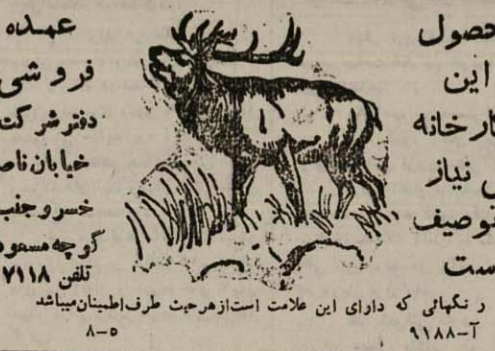 حصول
این
کارخانه
نیاز
توصیف
است
عمده
فروشی
دفتر شرکت
خیابان ناصر
خسرو جنب
کوچه مسعود
تلفن ۷۱۱۸
رنگهائی که دارای این علامت است از هر حیث طرف اطمینان میباشد
آ-۹۱۸۸ ۵-۸